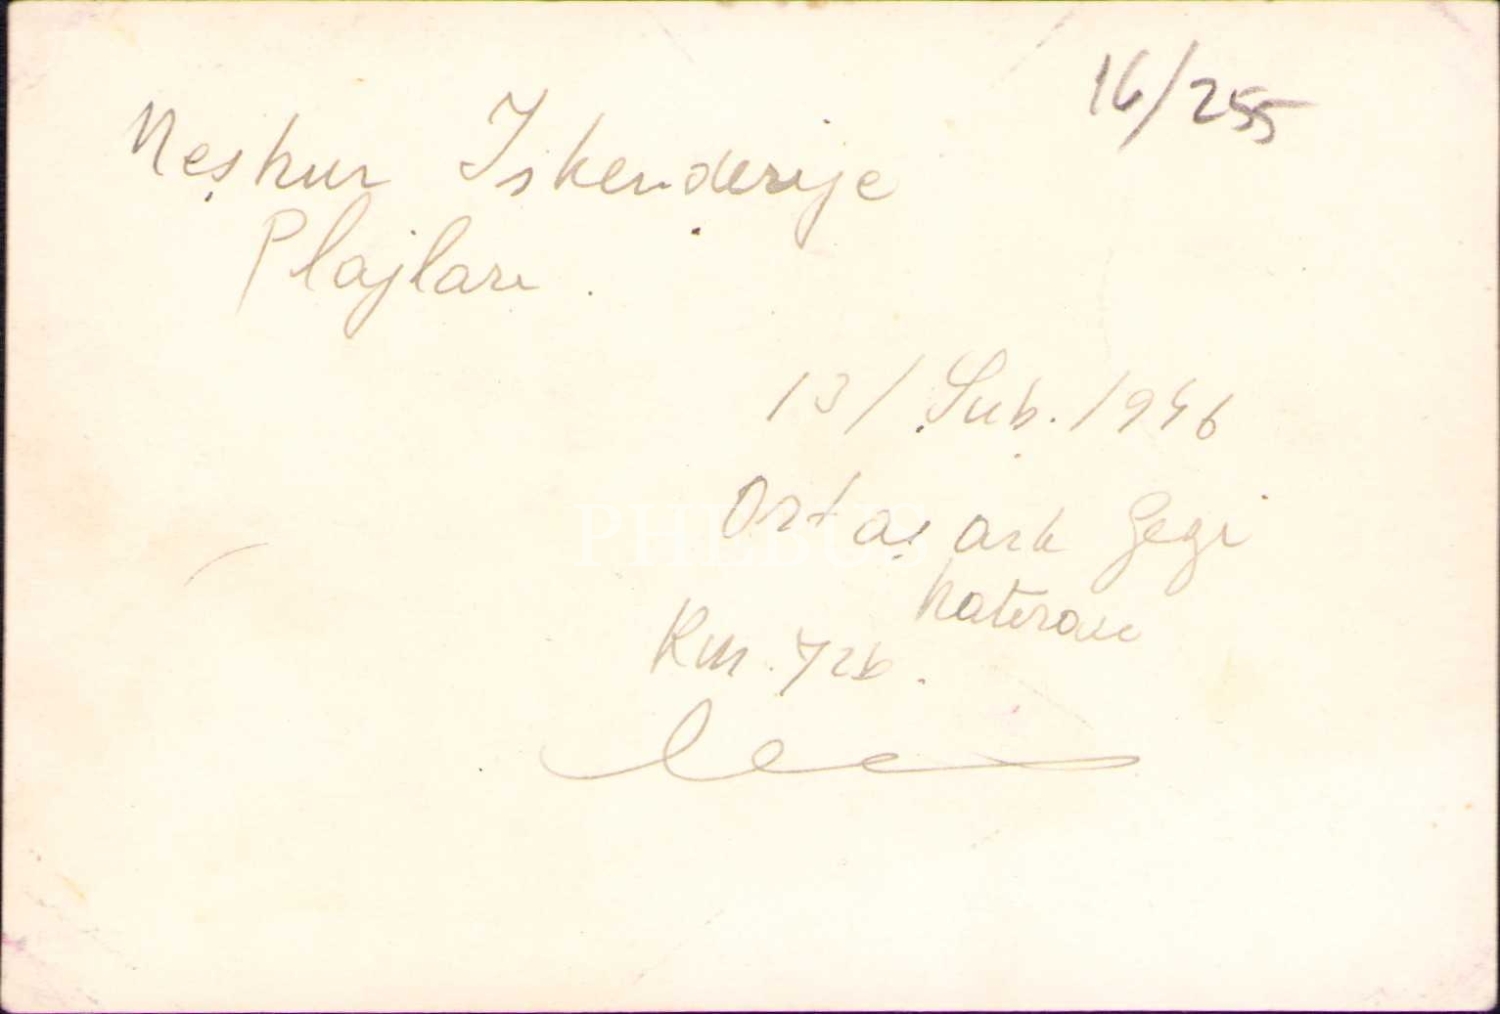 16/255
Meşhur Iskenderije
Plajları.
13/Şub. 1946
Ortaşark Gezi
hatırası
Km. Yzb.
PHEBUS